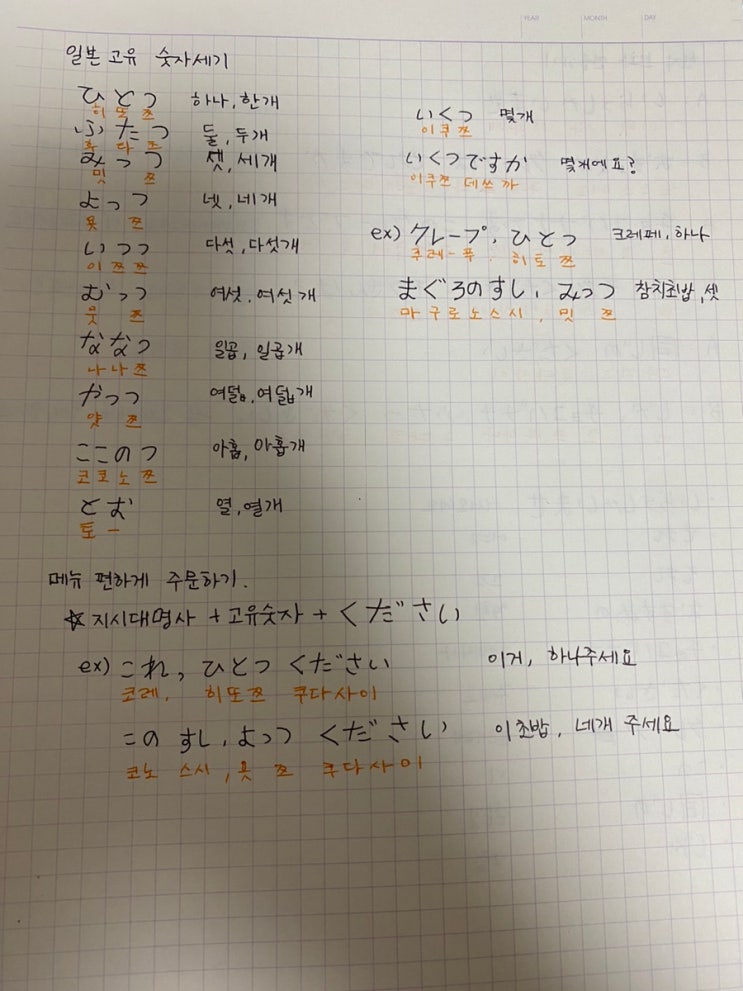 YEAR MONTH DAY
일본 고유 숫자세기
ひとつ 하나, 한개
히 또 쯔
ふたつ 둘, 두개
후 다 쯔
みっつ 셋, 세개
밋 쯔
よっつ 넷, 네개
욧 쯔
いつつ 다섯, 다섯개
이 쯔 쯔
むっつ 여섯, 여섯개
뭇 쯔
ななつ 일곱, 일곱개
나 나 쯔
やっつ 여덟, 여덟개
얏 쯔
ここのつ 아홉, 아홉개
코 코 노 쯔
とお 열, 열개
토 ー
いくつ 몇개
이 쿠 쯔
いくつですか 몇개에요?
이쿠쯔 데쓰까
ex) クレープ, ひとつ 크레페, 하나
쿠레-푸, 히토쯔
まぐろのすし, みっつ 참치초밥, 셋
마구로노스시, 밋 쯔
메뉴 편하게 주문하기.
☆ 지시대명사 + 고유숫자 + ください
ex) これ, ひとつ ください 이거, 하나주세요
코레, 히또쯔 쿠다사이
このすし, よっつ ください 이초밥, 네개 주세요
코노 스시, 욧 쯔 쿠다사이